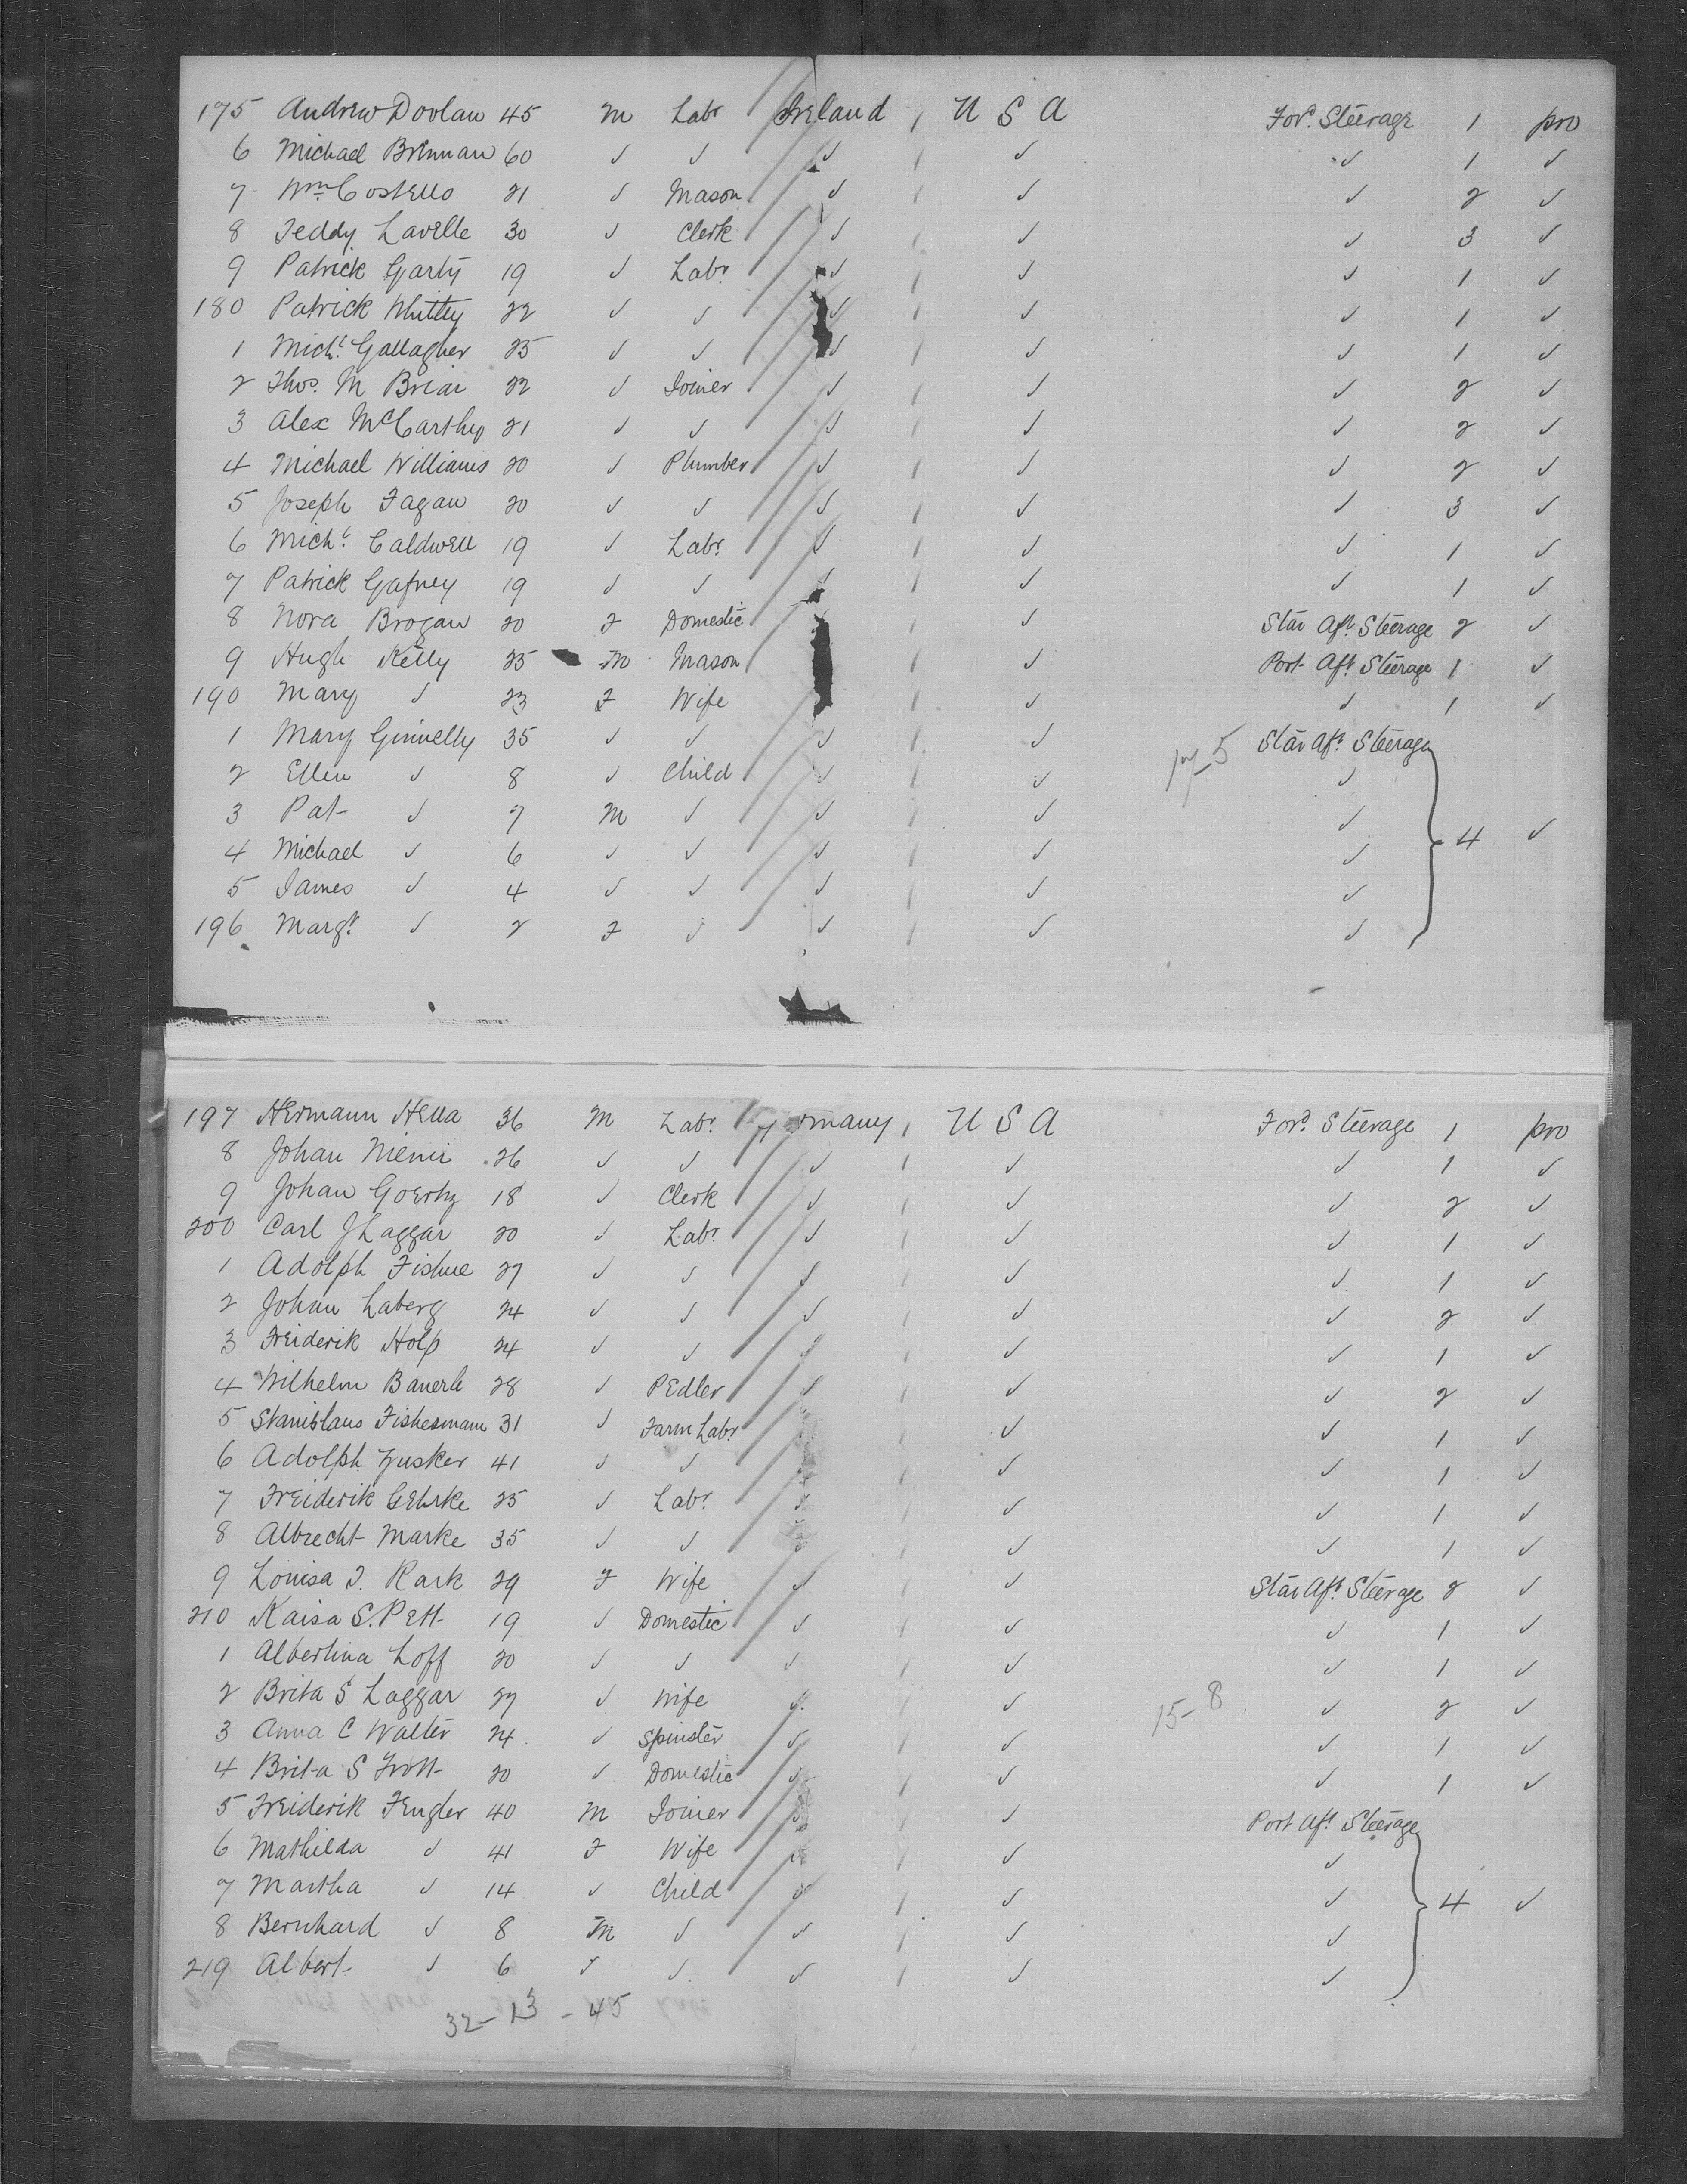 175 Andrew Doolan 45 M Labr Ireland U S A Ford. Steerage 1 pro
6 Michael Brennan 60 ✓ ✓ ✓ ✓ ✓ 1 ✓
7 Wm Costello 21 ✓ Mason ✓ ✓ ✓ 2 ✓
8 Teddy Lavelle 30 ✓ Clerk ✓ ✓ ✓ 3 ✓
9 Patrick Garty 19 ✓ Labr ✓ ✓ ✓ 1 ✓
180 Patrick Whitty 22 ✓ ✓ ✓ ✓ ✓ 1 ✓
1 Michl. Gallagher 25 ✓ ✓ ✓ ✓ ✓ 1 ✓
2 Thos. M Briar 22 ✓ Joiner ✓ ✓ ✓ 2 ✓
3 Alex McCarthy 21 ✓ ✓ ✓ ✓ ✓ 2 ✓
4 Michael Williams 20 ✓ Plumber ✓ ✓ ✓ 2 ✓
5 Joseph Fagan 20 ✓ ✓ ✓ ✓ ✓ 3 ✓
6 Michl. Caldwell 19 ✓ Labr ✓ ✓ ✓ 1 ✓
7 Patrick Gafney 19 ✓ ✓ ✓ ✓ ✓ 1 ✓
8 Nora Brogan 20 F Domestic ✓ Star Aft. Steerage 2 ✓
9 Hugh Kelly 25 M Mason ✓ Port Aft. Steerage 1 ✓
190 Mary ✓ 23 F Wife ✓ ✓ 1 ✓
1 Mary Ginnelly 35 ✓ ✓ ✓ ✓ 17-5 Star Aft. Steerage
2 Ellen ✓ 8 ✓ Child ✓ ✓ ✓
3 Pat ✓ 7 M ✓ ✓ ✓ ✓
4 Michael ✓ 6 ✓ ✓ ✓ ✓ ✓ 4 ✓
5 James ✓ 4 ✓ ✓ ✓ ✓ ✓
196 Margt. ✓ 2 F ✓ ✓ ✓ ✓
197 Hermann Hella 36 M Labr. many U S A Ford. Steerage 1 pro
8 Johan 26 ✓ ✓ ✓ ✓ ✓ 1 ✓
9 Johan Goertz 18 ✓ Clerk ✓ ✓ ✓ 2 ✓
200 Carl J Laggar 20 ✓ Labr. ✓ ✓ ✓ 1 ✓
1 Adolph 27 ✓ ✓ ✓ ✓ ✓ 1 ✓
2 Johan Laberg 24 ✓ ✓ ✓ ✓ ✓ 2 ✓
3 Freiderik Holp 24 ✓ ✓ ✓ ✓ ✓ 1 ✓
4 Wilhelm Bauerle 28 ✓ Pedler ✓ ✓ ✓ 2 ✓
5 Stanislaus Fishermann 31 ✓ Farm Labr ✓ ✓ ✓ 1 ✓
6 Adolph Zusker 41 ✓ ✓ ✓ ✓ ✓ 1 ✓
7 Freiderik Gehrke 25 ✓ Labr. ✓ ✓ ✓ 1 ✓
8 Albrecht Marke 35 ✓ ✓ ✓ ✓ ✓ 1 ✓
9 Louisa J. Rark 29 F Wife ✓ ✓ Star Aft. Steerage 2 ✓
210 Kaisa S. Pett 19 ✓ Domestic ✓ ✓ ✓ 1 ✓
1 Albertina Loff 20 ✓ ✓ ✓ ✓ ✓ 1 ✓
2 Brita S Laggar 27 ✓ Wife ✓ ✓ 15-8 ✓ 2 ✓
3 Anna C Walter 24 ✓ Spinster ✓ ✓ ✓ 1 ✓
4 Brita S Trott 20 ✓ Domestic ✓ ✓ ✓ 1 ✓
5 Freiderik Fengler 40 M Joiner ✓ ✓ Port Aft. Steerage
6 Mathilda ✓ 41 F Wife ✓ ✓ ✓
7 Martha ✓ 14 ✓ Child ✓ ✓ ✓ 4 ✓
8 Bernhard ✓ 8 M ✓ ✓ ✓ ✓
219 Albert ✓ 6 ✓ ✓ ✓ ✓ ✓
32-13-45